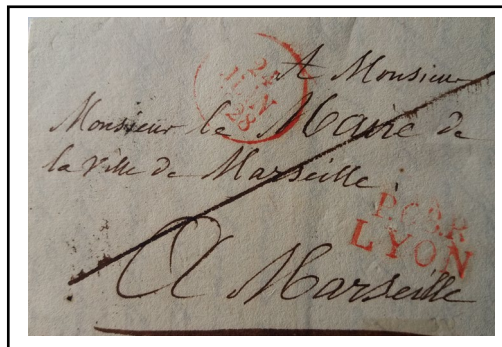 24
JUIN
1828
A Monsieur
Monsieur le Maire de
la ville de Marseille.
P.68.P.
LYON
A Marseille